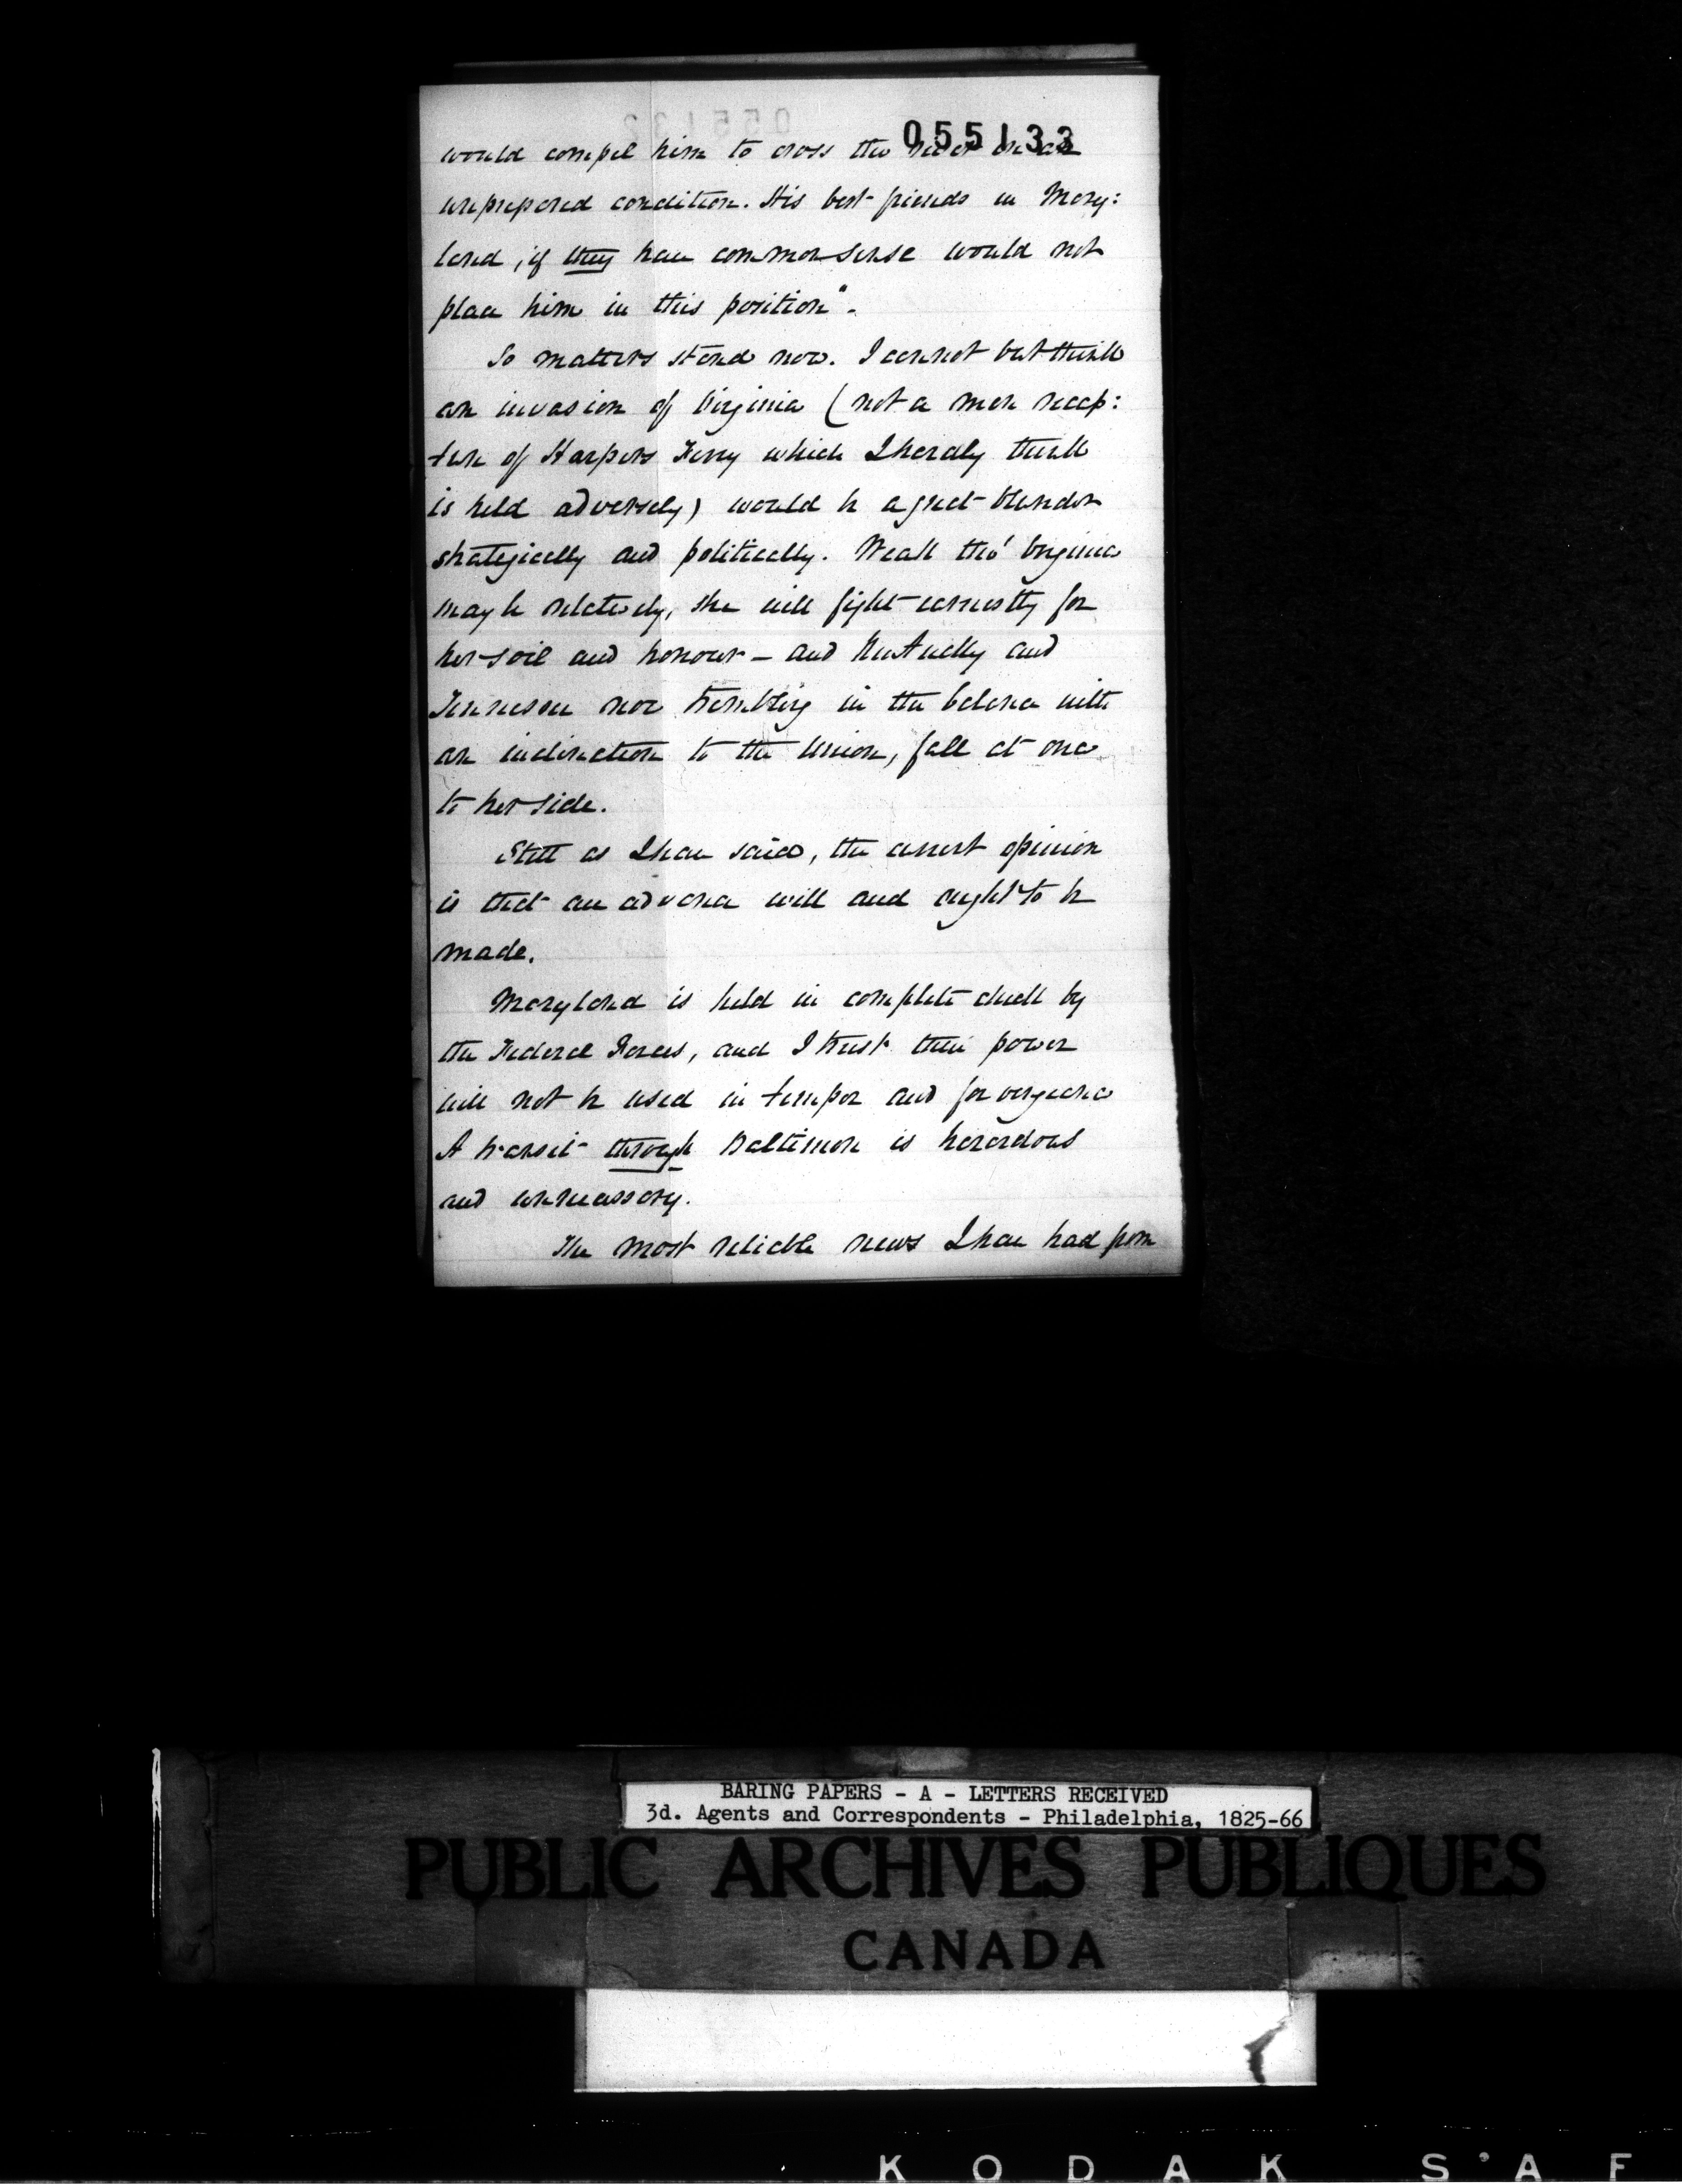 055133
would compel him to cross the river in an
unprepared condition. His best friends in Mary:
land, if they have common sense would not
place him in this position".
So matters stand now. I cannot but think
an invasion of Virginia (not a mere recap:
ture of Harpers Ferry which I hardly think
is held adversely) would be a great blunder
strategically and politically. Weak tho' Virginia
may be relatively, she will fight earnestly for
her soil and honour - and Kentucky and
Tennessee now trembling in the balance with
an inclination to the Union, fall at once
to her side.
Still as I have said, the current opinion
is that an advance will and ought to be
made.
Maryland is held in complete check by
the Federal Forces, and I trust their power
will not be used in temper and for vengeance
A transit through Baltimore is hazardous
and unnecessary.
The most reliable news I have had from
BARING PAPERS - A - LETTERS RECEIVED
3d. Agents and Correspondents - Philadelphia, 1825-66
PUBLIC ARCHIVES PUBLIQUES
CANADA
KODAK S'AF